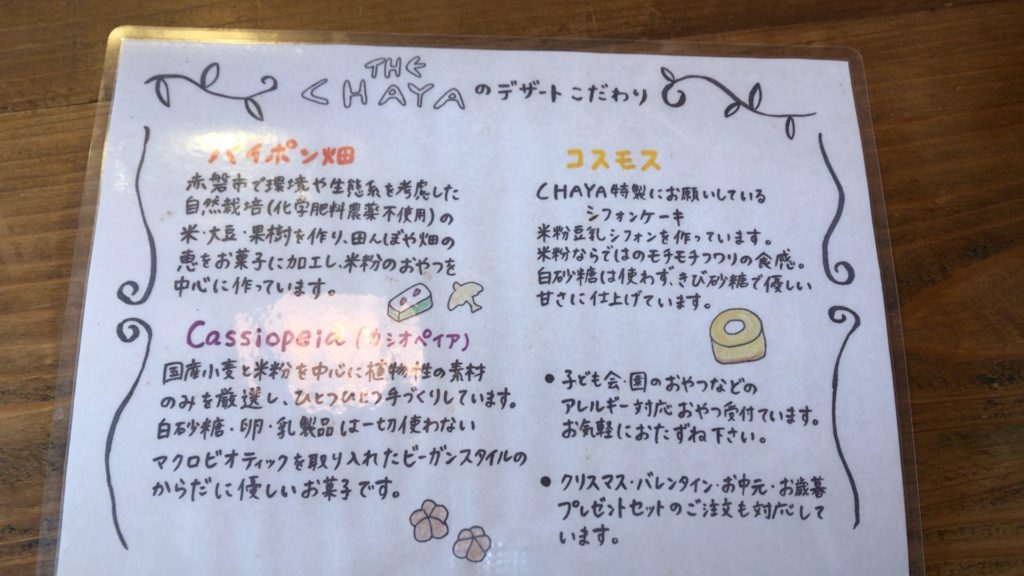 THE
CHAYAのデザートこだわり
ハイポン畑
赤磐市で環境や生態系を考慮した
自然栽培(化学肥料農薬不使用)の
米・大豆・果樹を作り、田んぼや畑の
恵をお菓子に加工し、米粉のおやつを
中心に作っています。
Cassiopeia(カシオペイア)
国産小麦と米粉を中心に植物性の素材
のみを厳選し、ひとつひとつ手づくりしています。
白砂糖・卵・乳製品は一切使わない
マクロビオティックを取り入れたビーガンスタイルの
からだに優しいお菓子です。
コスモス
CHAYA特製にお願いしている
シフォンケーキ
米粉豆乳シフォンを作っています。
米粉ならではのモチモチフワリの食感。
白砂糖は使わず、きび砂糖で優しい
甘さに仕上げています。
●子ども会・園のおやつなどの
アレルギー対応おやつ受付ています。
お気軽におたずね下さい。
●クリスマス・バレンタイン・お中元・お歳暮
プレゼントセットのご注文も対応して
います。